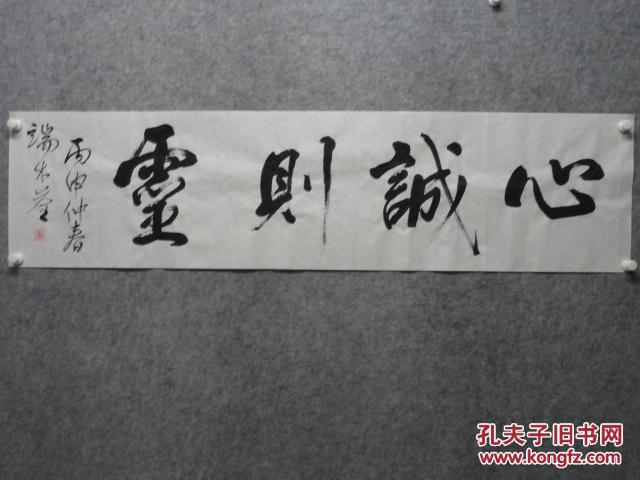 心誠則靈
丙申仲春
端木
孔夫子旧书网
www.kongfz.com